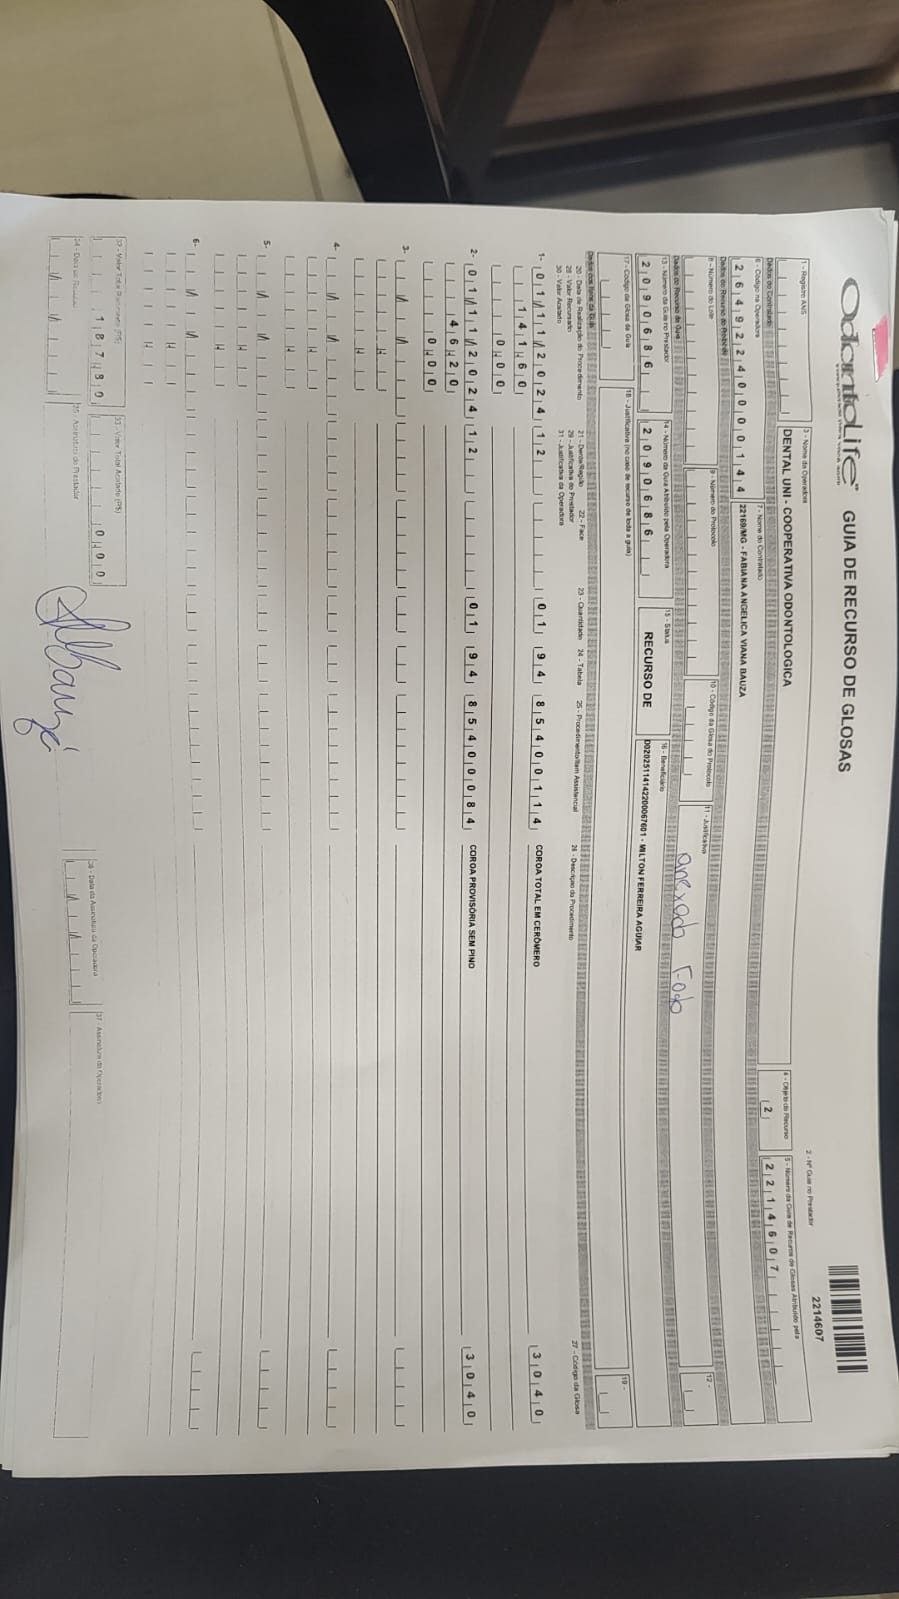 OdontoLife GUIA DE RECURSO DE GLOSAS
2 - Nº Guia no Prestador
2214607
1 - Registro ANS
3 - Nome da Operadora
DENTAL UNI - COOPERATIVA ODONTOLOGICA
4 - Objeto do Recurso
2
5 - Número da Guia de Recurso de Glosas Atribuído pela
2214607
Dados do Contratado
6 - Código na Operadora
26492240000144
7 - Nome do Contratado
22169/MG - FABIANA ANGELICA VIANA BAUZA
Dados do Recurso do Protocolo
8 - Número do Lote
9 - Número do Protocolo
10 - Código da Glosa do Protocolo
11 - Justificativa
anexado Foto
12 -
Dados do Recurso da Guia
13 - Número da Guia no Prestador
2090686
14 - Número da Guia Atribuído pela Operadora
2090686
15 - Status
RECURSO DE
16 - Beneficiário
D0202511414220006760­1 - MILTON FERREIRA AGUIAR
17 - Código da Glosa da Guia
18 - Justificativa (no caso de recurso de toda a guia)
19 -
Dados dos Itens da Guia
20 - Data de Realização do Procedimento 21 - Dente/Região 22 - Face 23 - Quantidade 24 - Tabela 25 - Procedimento/Item Assistencial 26 - Descrição do Procedimento 27 - Código da Glosa
28 - Valor Recursado 29 - Justificativa do Prestador
30 - Valor Acatado 31 - Justificativa da Operadora
1- 01/11/2024 12 01 94 85400114 COROA TOTAL EM CERÔMERO 3040
141,60
0,00
2- 01/11/2024 12 01 94 85400084 COROA PROVISÓRIA SEM PINO 3040
46,20
0,00
3-
4-
5-
6-
32 - Valor Total Recursado (R$)
187,80
33 - Valor Total Acatado (R$)
0,00
34 - Data do Recurso
35 - Assinatura do Prestador
36 - Data da Assinatura da Operadora
37 - Assinatura da Operadora